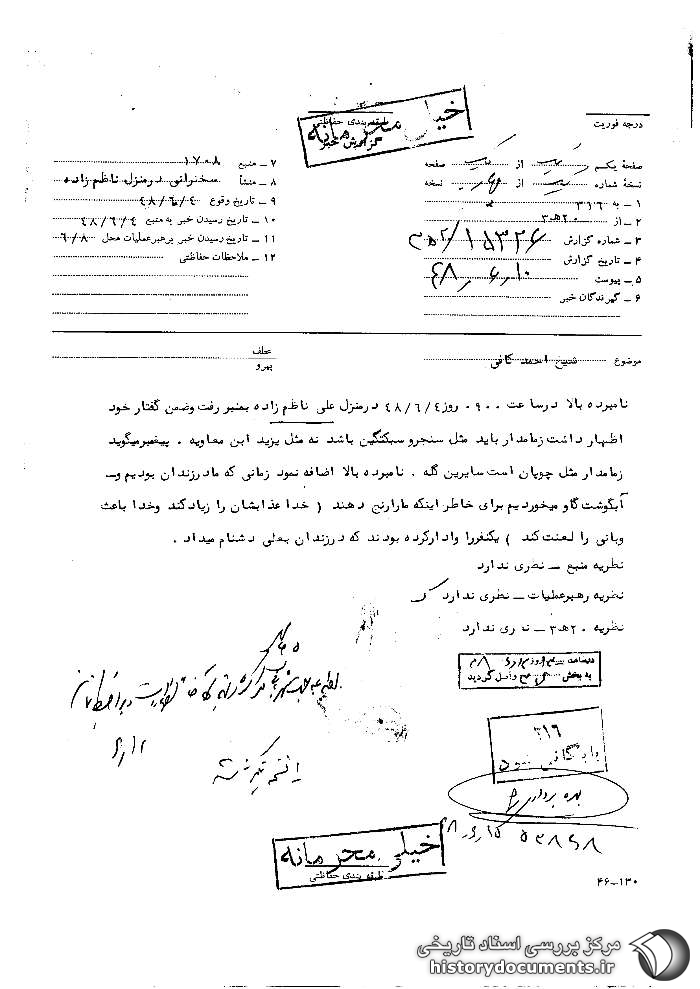 خیلی محرمانه
طبقه بندی حفاظتی
گزارش خبر
درجه فوریت
صفحه یکم یک از یک صفحه
نسخه شماره یک از چهار نسخه
۱ – به ۳۱۶
۲ – از ۲۰هـ۳
۳ – شماره گزارش ۳۵۲/۱۵۳۲۶
۴ – تاریخ گزارش ۴۸٫۶٫۱۰
۵ – پیوست
۶ – گیرندگان خبر
۷ – منبع ۱۷۰۸
۸ – منشأ سخنرانی درمنزل ناظم زاده
۹ – تاریخ وقوع ۴۸/۶/۴
۱۰ – تاریخ رسیدن خبر به منبع ۴۸/۶/۴
۱۱ – تاریخ رسیدن خبر برهبرعملیات محل ۶/۸
۱۲ – ملاحظات حفاظتی
موضوع شیخ احمد کافی
عطف
پیرو
نامبرده بالا درساعت ۰۹۰۰ روز۴۸/۶/۴ درمنزل علی ناظم زاده بمنبر رفت وضمن گفتار خود
اظهار داشت زمامدار باید مثل سنجرو سبکتگین باشد نه مثل یزید ابن معاویه . پیغمبرمیگوید
زمامدار مثل چوپان است سایرین گله . نامبرده بالا اضافه نمود زمانی که مادرزندان بودیم و
آبگوشت گاو میخوردیم برای خاطر اینکه مارارنج دهند ( خدا عذابشان را زیادکند وخدا باعث
وبانی را لعنت کند ) یکنفررا وادارکرده بودند که درزندان بعلی دشنام میداد .
نظریه منبع – نظری ندارد
نظریه رهبرعملیات – نظری ندارد
نظریه ۲۰هـ۳ – نظری ندارد
به بخش واصل گردید
۳۱۶
بایگانی شود
بهره برداری
۱۵٫۶٫۴۸
خیلی محرمانه
طبقه بندی حفاظتی
۴۶–۱۳۰
مرکز بررسی اسناد تاریخی
historydocuments.ir